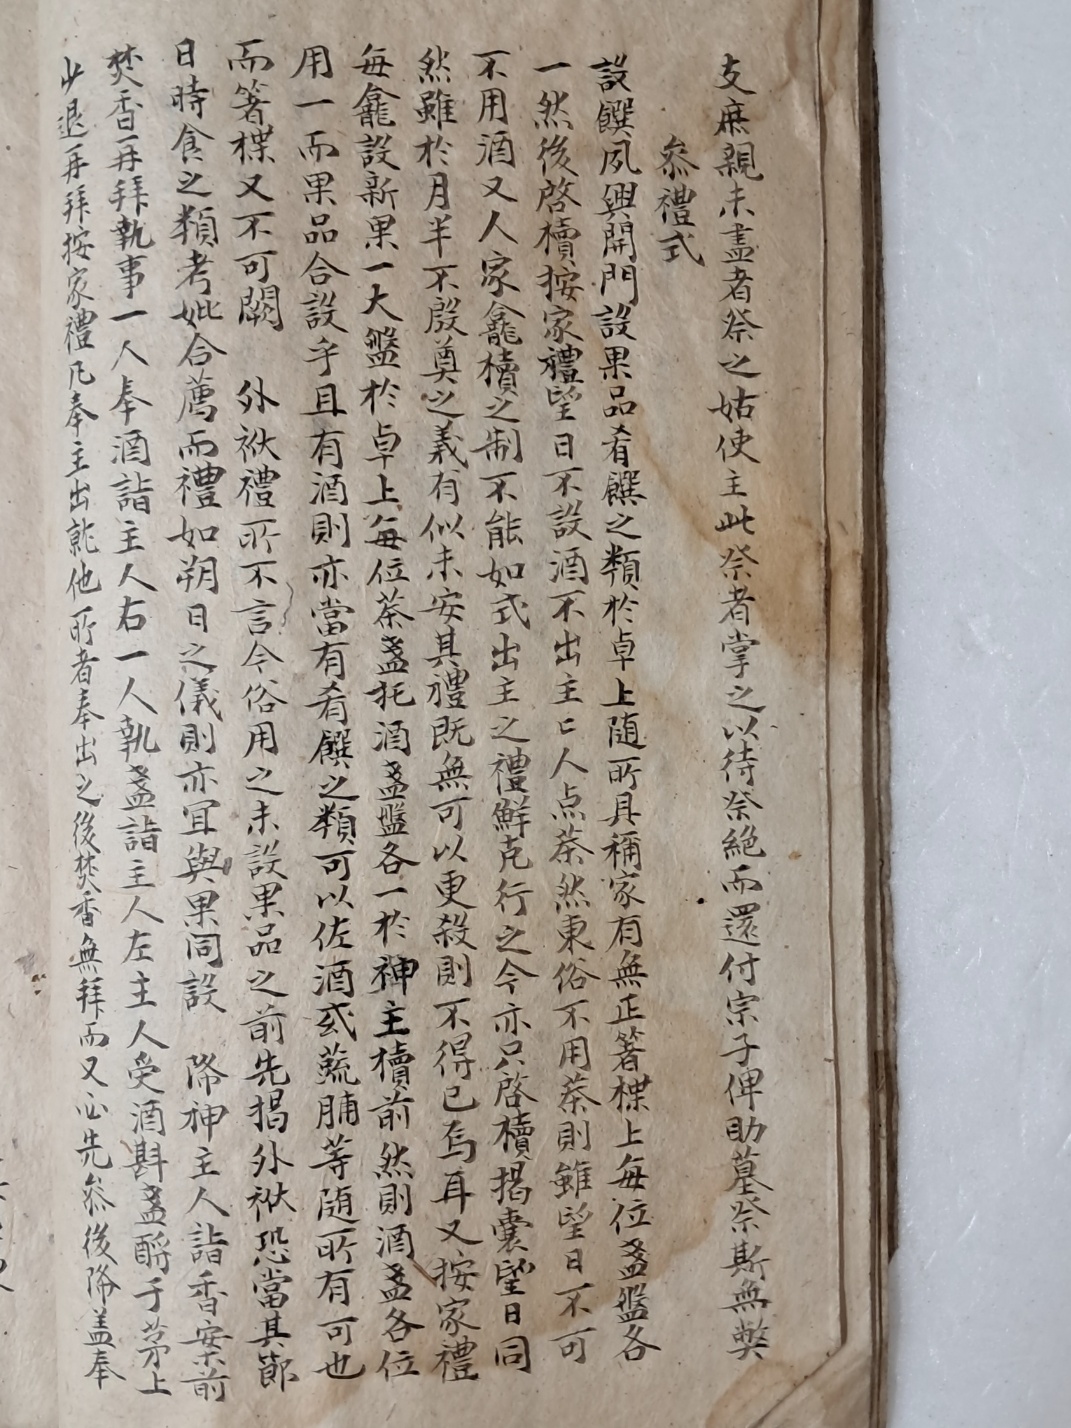 支庶親未盡者祭之姑使主此祭者掌之以待祭絶而還付宗子俾助墓祭斯無弊
叅禮式
設饌夙興開門設果品肴饌之類於卓上随所具稱家有無正箸楪上每位盞盤各
一然後啓櫝按家禮望日不設酒不出主〻人点茶然東俗不用茶則雖望日不可
不用酒又人家龕櫝之制不能如式出主之禮鮮克行之今亦只啓櫝揭囊望日同
然雖於月半不殷奠之義有似未安其禮既無可以更殺則不得已焉耳又按家禮
每龕設新果一大盤於卓上每位茶盞托酒盞盤各一於神主櫝前然則酒盞各位
用一而果品合設乎且有酒則亦當有肴饌之類可以佐酒或蔬脯等随所有可也
而箸楪又不可闕 外袱禮所不言今俗用之未設果品之前先揭外袱恐當其節
日時食之類考妣合薦而禮如朔日之儀則亦宜與果同設 降神主人詣香案前
焚香再拜執事一人奉酒詣主人右一人執盞詣主人左主人受酒斟盞酹于茅上
少退再拜按家禮凡奉主出就他所者奉出之後焚香無拜而又必先叅後降盖奉